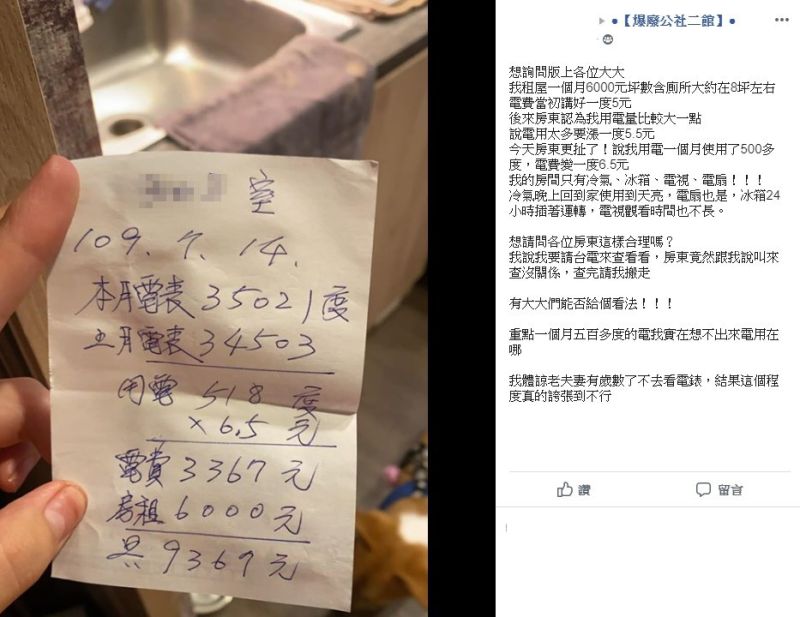 室
109. 7. 14.
本月電表 35021度
上月電表 34503
用電 518 度
× 6.5 元
電費 3367 元
房租 6000元
共 9367元
【爆廢公社二館】
想詢問版上各位大大
我租屋一個月6000元坪數含廁所大約在8坪左右
電費當初講好一度5元
後來房東認為我用電量比較大一點
說電用太多要漲一度5.5元
今天房東更扯了！說我用電一個月使用了500多
度，電費變一度6.5元
我的房間只有冷氣、冰箱、電視、電扇！！！
冷氣晚上回到家使用到天亮，電扇也是，冰箱24
小時插著運轉，電視觀看時間也不長。
想請問各位房東這樣合理嗎？
我說我要請台電來查看看，房東竟然跟我說叫來
查沒關係，查完請我搬走
有大大們能否給個看法！！！
重點一個月五百多度的電我實在想不出來電用在
哪
我體諒老夫妻有歲數了不去看電錶，結果這個程
度真的誇張到不行
讚
留言